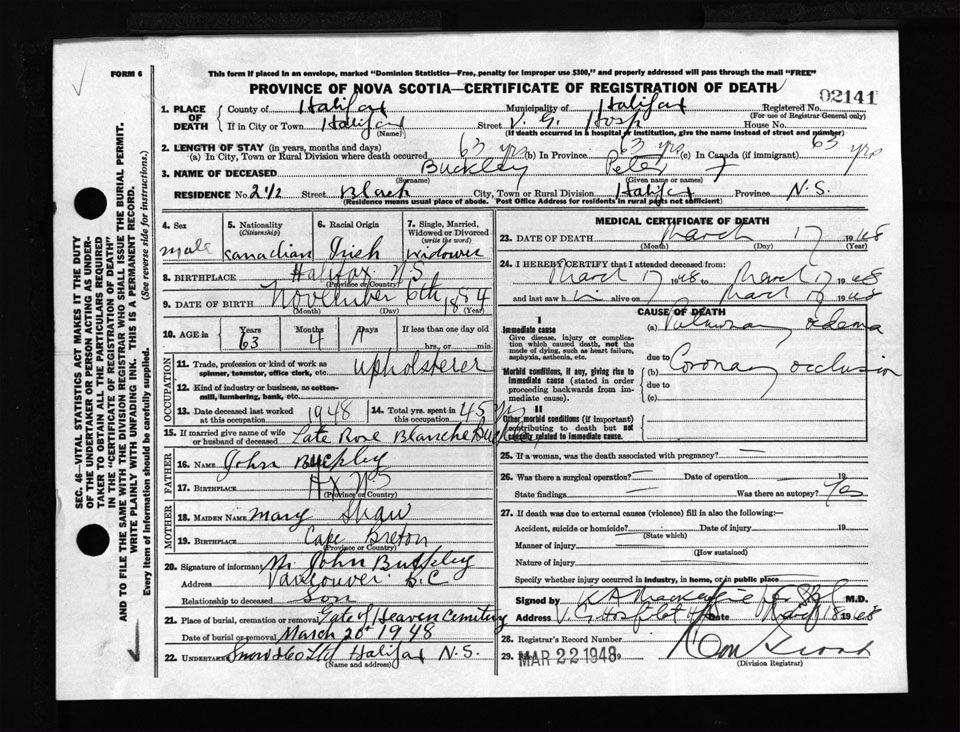 FORM 6
This form if placed in an envelope, marked "Dominion Statistics—Free, penalty for improper use $300," and properly addressed will pass through the mail "FREE"
PROVINCE OF NOVA SCOTIA—CERTIFICATE OF REGISTRATION OF DEATH
02141
1. PLACE OF DEATH
County of Halifax Municipality of Halifax Registered No.
(For use of Registrar General only)
If in City or Town Halifax Street V. G. Hosp House No.
(Name) (If death occurred in a hospital or institution, give the name instead of street and number)
2. LENGTH OF STAY (in years, months and days)
(a) In City, Town or Rural Division where death occurred 63 yrs (b) In Province 63 yrs (c) In Canada (if immigrant) 63 yrs
3. NAME OF DECEASED Buckley Peter
(Surname) (Given name or names)
RESIDENCE No. 2 1/2 Street Black City, Town or Rural Division Halifax Province N.S.
(Residence means usual place of abode. Post Office Address for residents in rural parts not sufficient)
4. Sex
male
5. Nationality
(Citizenship)
Canadian
6. Racial Origin
Irish
7. Single, Married, Widowed or Divorced
(write the word)
Widower
8. BIRTHPLACE Halifax N.S
(Province or Country)
9. DATE OF BIRTH November 6th 1884
(Month) (Day) (Year)
10. AGE in
Years 63
Months 4
Days 11
If less than one day
hrs., or min.
OCCUPATION
11. Trade, profession or kind of work as spinner, teamster, office clerk, etc. upholsterer
12. Kind of industry or business, as cotton-mill, lumbering, bank, etc.
13. Date deceased last worked at this occupation 1948
14. Total yrs. spent in this occupation 45 yrs
15. If married give name of wife or husband of deceased Late Rose Blanche Buckley
FATHER
16. NAME John Buckley
17. BIRTHPLACE Hx N S
(Province or Country)
MOTHER
18. MAIDEN NAME Mary Shaw
19. BIRTHPLACE Cape Breton
(Province or Country)
20. Signature of informant Mr. John Buckley
Address Vancouver B.C
Relationship to deceased Son
21. Place of burial, cremation or removal Gate of Heaven Cemetery
Date of burial or removal March 20th 1948
22. UNDERTAKER Snow & Co Ltd Halifax N.S.
(Name and address)
MEDICAL CERTIFICATE OF DEATH
23. DATE OF DEATH March 17 1948
(Month) (Day) (Year)
24. I HEREBY CERTIFY that I attended deceased from:
March 17 1948 March 17 1948
and last saw him alive on March 17 1948
CAUSE OF DEATH
I
Immediate cause
Give disease, injury or complication which caused death, not the mode of dying, such as heart failure, asphyxia, asthenia, etc.
(a) Pulmonary edema
due to
Morbid conditions, if any, giving rise to immediate cause (stated in order proceeding backwards from immediate cause).
(b) Coronary occlusion
due to
(c)
II
Other morbid conditions (if important) contributing to death but not causally related to immediate cause.
25. If a woman, was the death associated with pregnancy?
26. Was there a surgical operation? Date of operation 19
State findings Was there an autopsy? Yes
27. If death was due to external causes (violence) fill in also the following:—
Accident, suicide or homicide? Date of injury 19
(State which)
Manner of injury
(How sustained)
Nature of injury
Specify whether injury occurred in industry, in home, or in public place
Signed by K A Mackenzie M.D.
Address V. G. Hospital Date 18 1948
28. Registrar's Record Number
29. MAR 22 1948
(Division Registrar)
SEC. 46—VITAL STATISTICS ACT MAKES IT THE DUTY
OF THE UNDERTAKER OR PERSON ACTING AS UNDER-
TAKER TO OBTAIN ALL THE PARTICULARS REQUIRED
IN THE "CERTIFICATE OF REGISTRATION OF DEATH"
AND TO FILE THE SAME WITH THE DIVISION REGISTRAR WHO SHALL ISSUE THE BURIAL PERMIT.
WRITE PLAINLY WITH UNFADING INK. THIS IS A PERMANENT RECORD.
Every item of information should be carefully supplied. (See reverse side for instructions.)